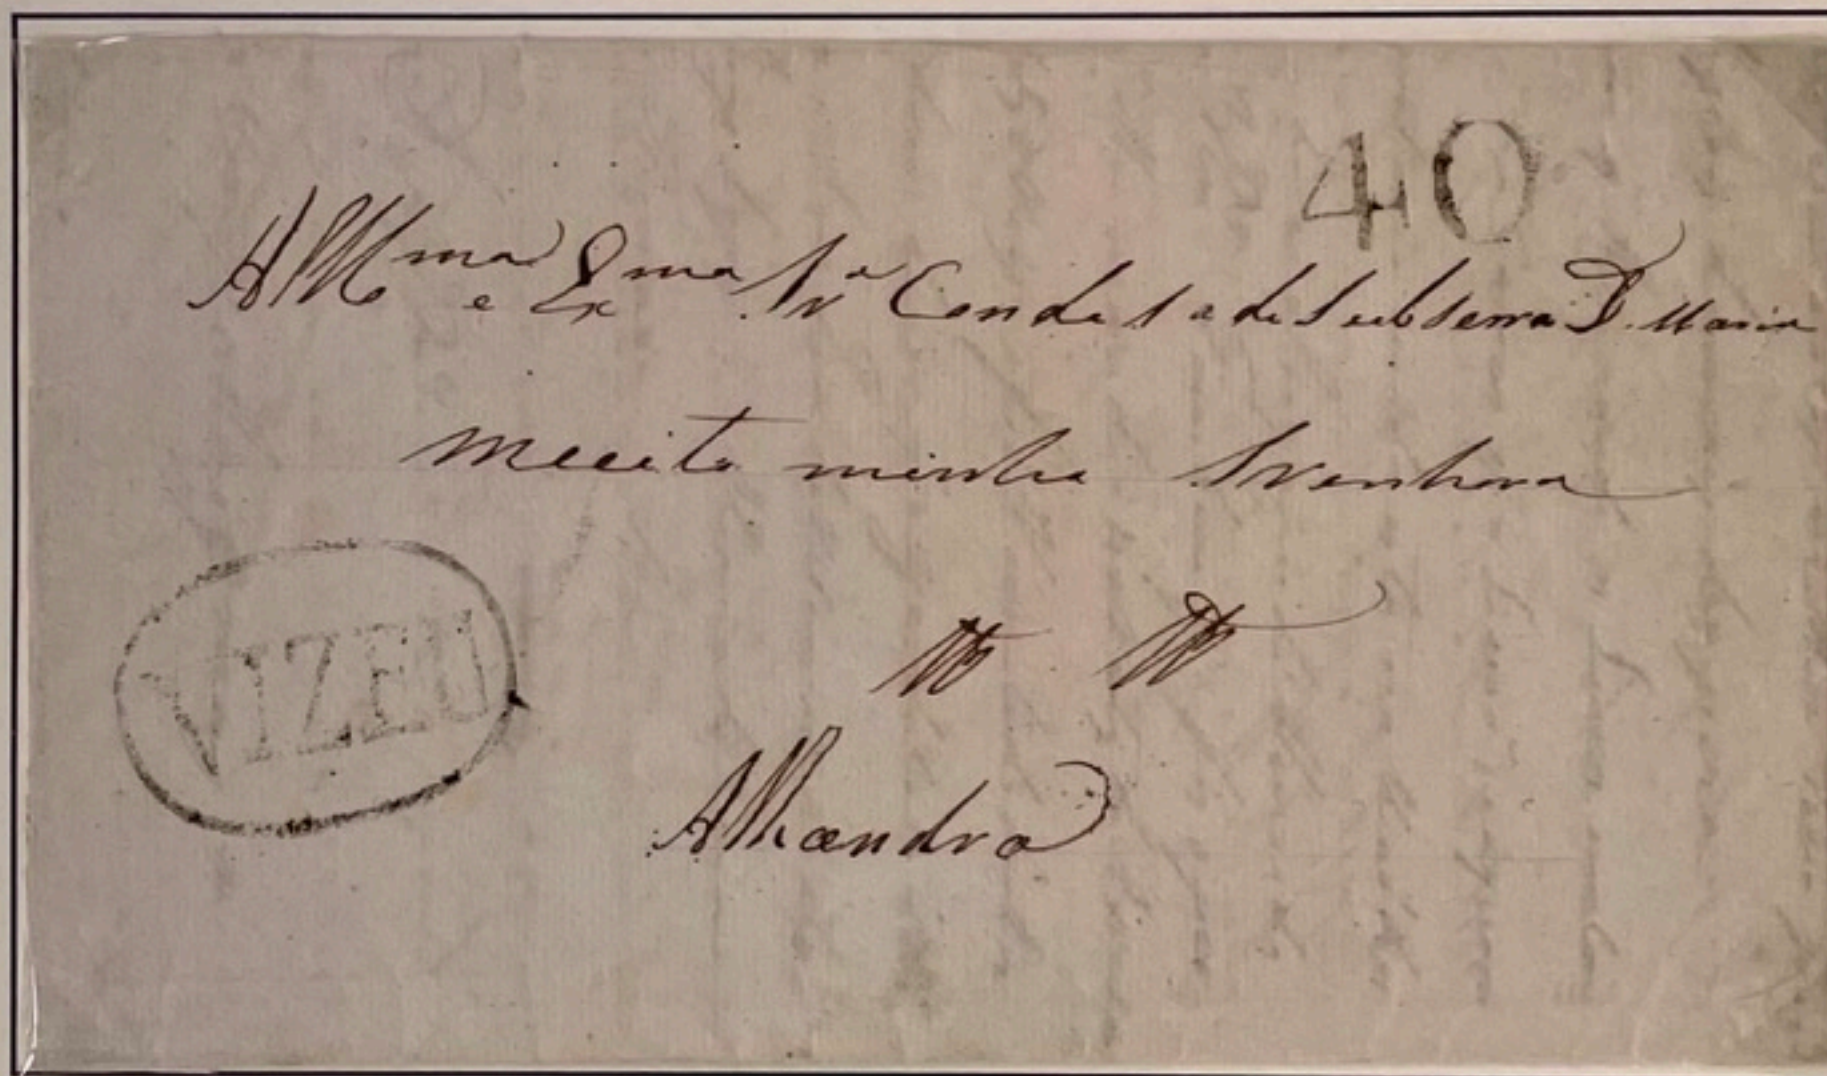 40
A Illma e Exma Snra Condesa de Subserra D. Maria
Mecita minha Senhora
VIZEU
Alhandra